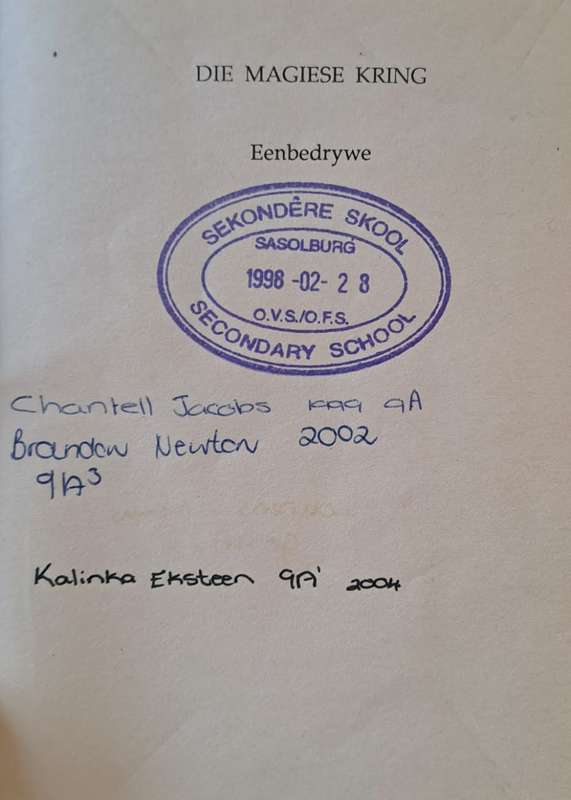 DIE MAGIESE KRING
Eenbedrywe
SEKONDÊRE SKOOL
SASOLBURG
1998 -02- 2 8
O.V.S./O.F.S.
SECONDARY SCHOOL
Chantell Jacobs 1999 9A
Brandon Newton 2002
9A3
Kalinka Eksteen 9A1 2004